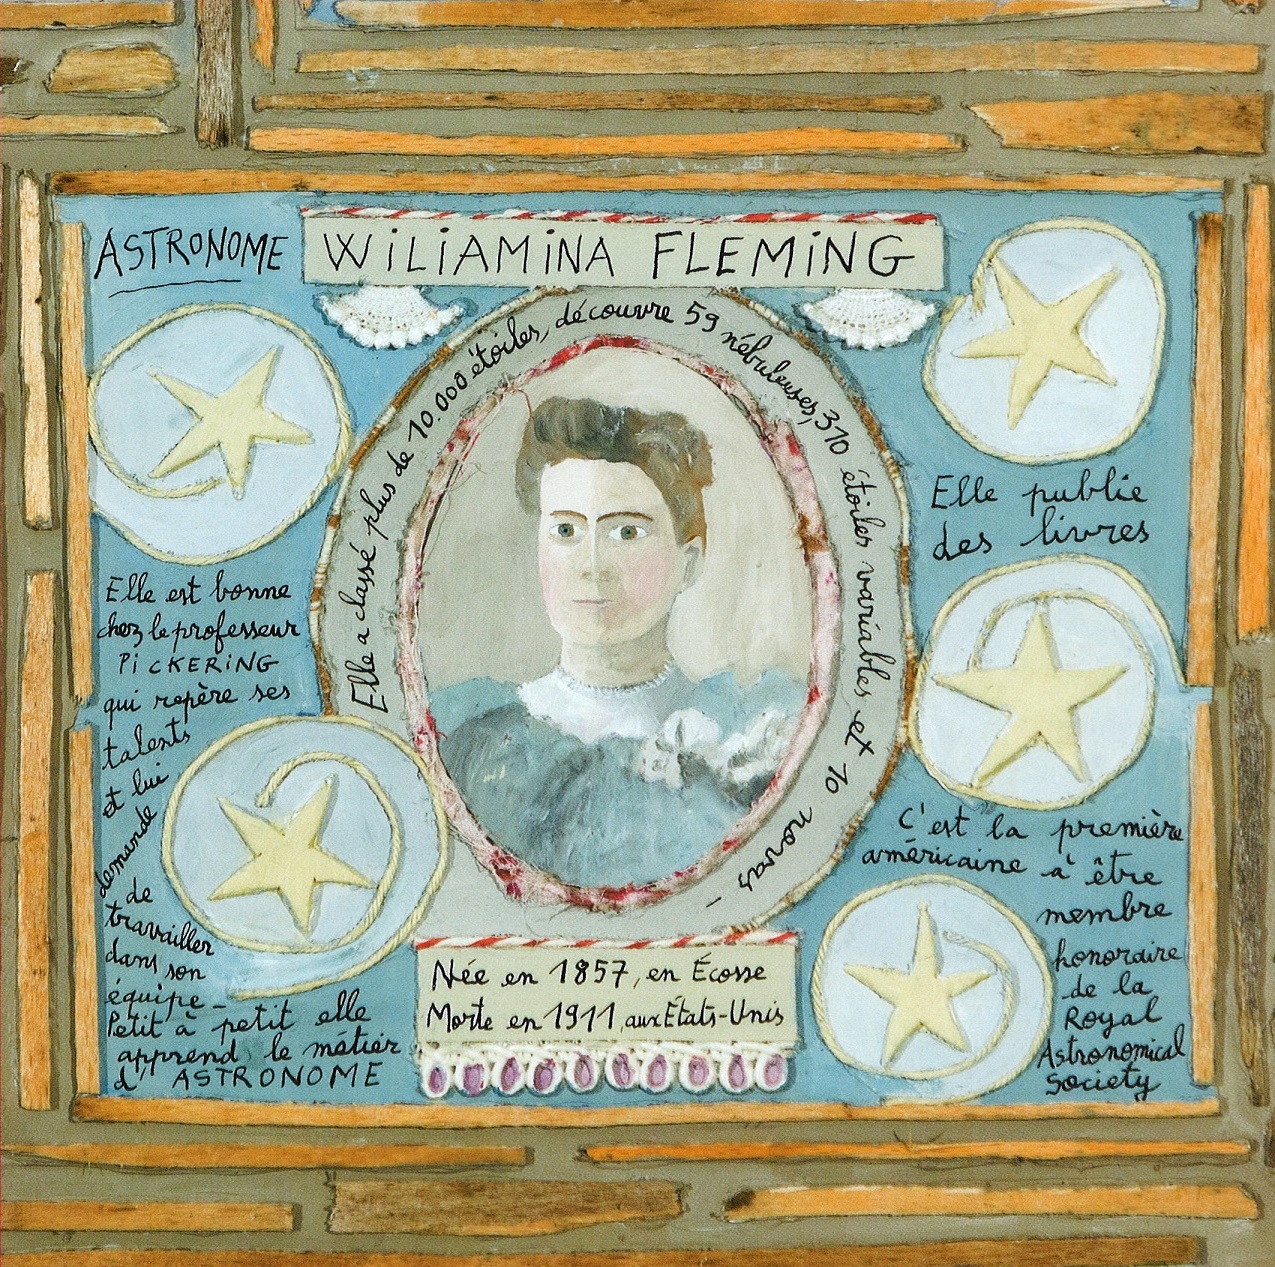 ASTRONOME
WiLiAMiNA FLEMiNG
Elle a classé plus de 10.000 étoiles, découvre 59 nébuleuses, 310 étoiles variables et 10 novas
Elle est bonne
chez le professeur
PiCKERiNG
qui repère ses
talents
et lui
demande
de
travailler
dans son
équipe_
Petit à petit elle
apprend le métier
d'ASTRONOME
Née en 1857, en Écosse
Morte en 1911, aux États-Unis
Elle publie
des livres
C'est la première
américaine à être
membre
honoraire
de la
Royal
Astronomical
Society